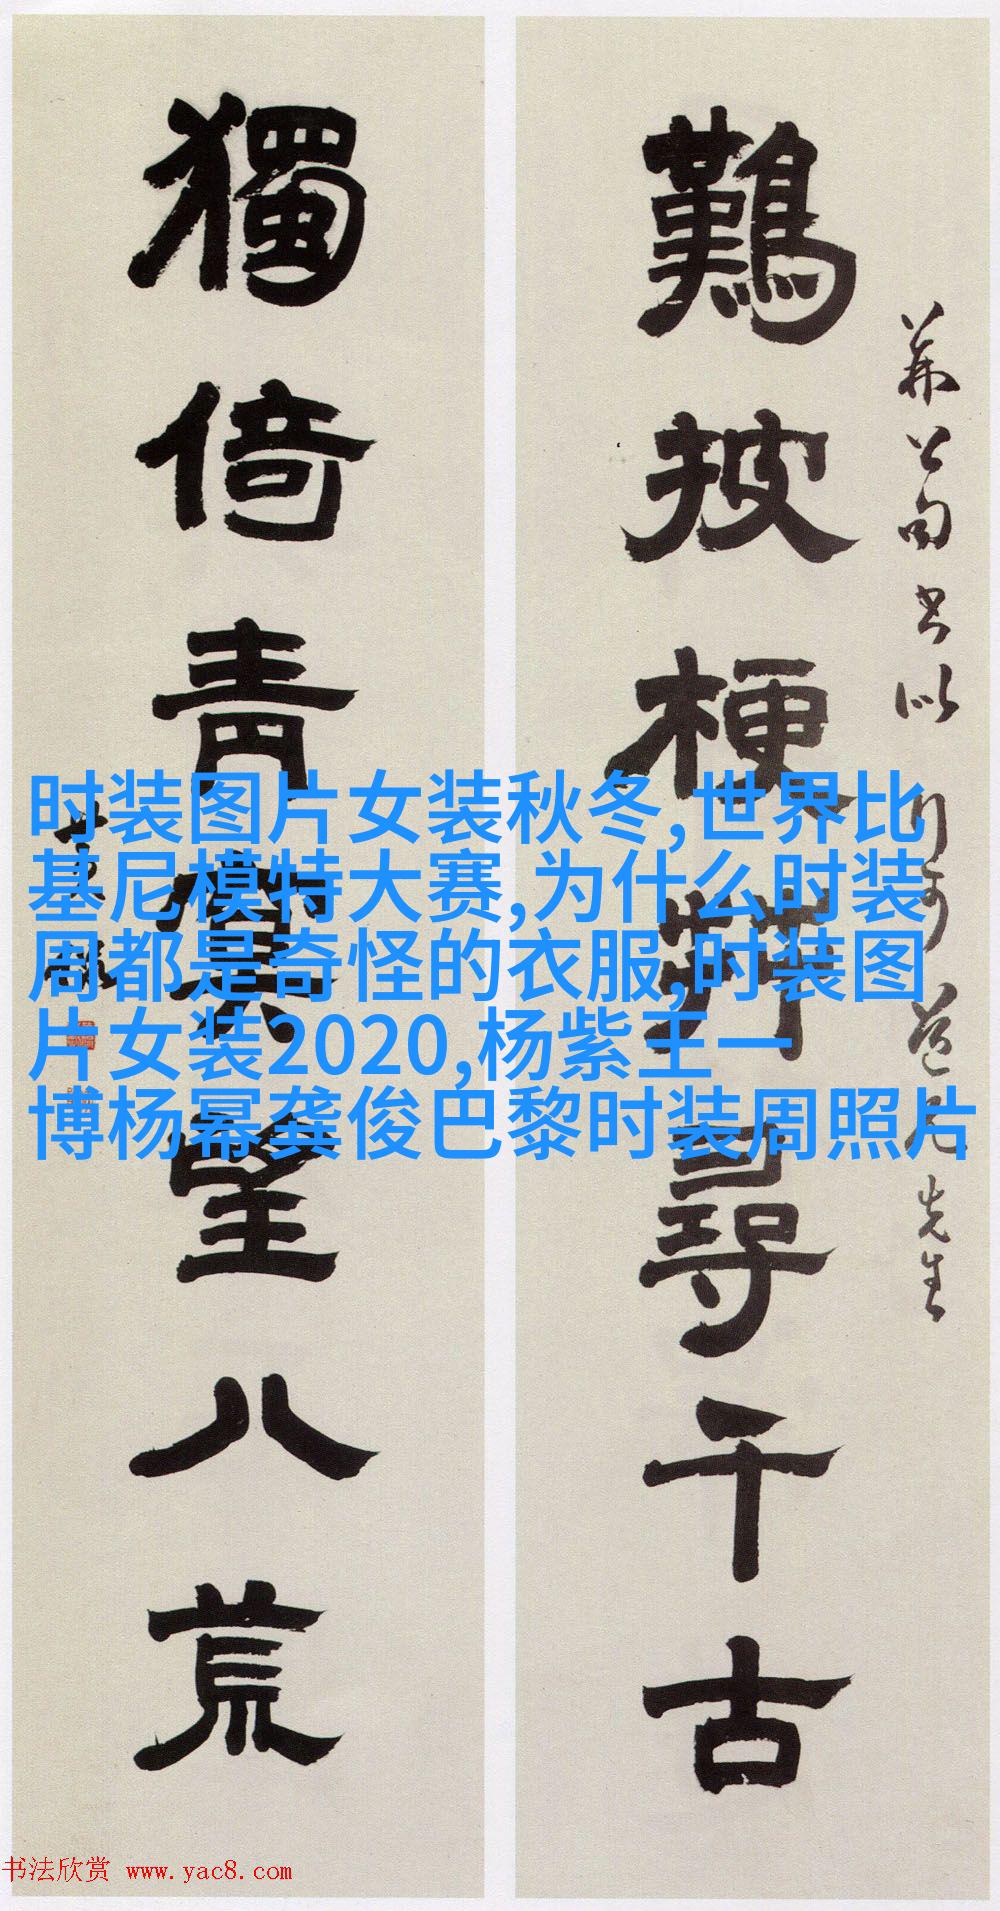 公句書以
先生
難披梗尋千古
獨倚青望八荒
时装图片女装秋冬,世界比
基尼模特大赛,为什么时装
周都是奇怪的衣服,时装图
片女装2020,杨紫王一
博杨幂龚俊巴黎时装周照片
书法欣赏 www.yac8.com